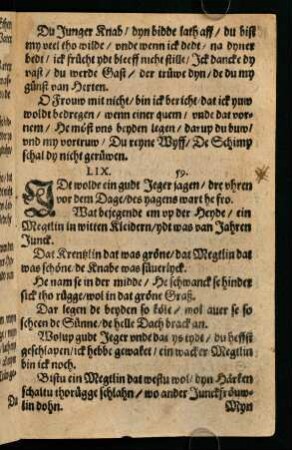 Du Junger Knab/ dyn bidde lath aff/ du bist
my veel tho wilde/ vnde wenn ick dedt/ na dyner
bedt/ ick frücht ydt bleeff nicht stille/ Ick dancke dy
vast/ du werde Gast/ der trüwe dyn/ de du my
günst van Herten.
O Frouw mit nicht/ bin ick bericht/ dat ick yuw
woldt bedregen/ wenn einer quem/ vnde dat vor-
nem/ He möst ons beyden legen/ darup du buw/
vnd my vortruw/ Du reyne Wyff/ De Schimp
schal dy nicht gerüwen.
LIX. 59.
IDt wolde ein gudt Jeger jagen/ dre vhren
vor dem Dage/ des yagens wart he fro.
Wat bejegende em vp der Heyde/ ein
Megtlin in witten Kleidern/ ydt was van Jahren
Junck.
Dat Krentzlin dat was gröne/ dat Megtlin dat
was schöne/ de Knabe was süuerlyck.
He nam se in der midde/ He schwanck se hinder
sick tho rügge/ wol in dat gröne Graß.
Dar legen de beyden so költ/ wol auer se so
scheen de Sünne/ de helle Dach brack an.
Wolup gudt Jeger vnde dat ys tydt/ du heffst
geschlapen/ ick hebbe gewaket/ ein wacker Megtlin
bin ick noch.
Bistu ein Megtlin dat westu wol/ dyn Härken
schaltu thorügge schlahn/ wo ander Junckfröuw-
lin dohn. Myn
Du